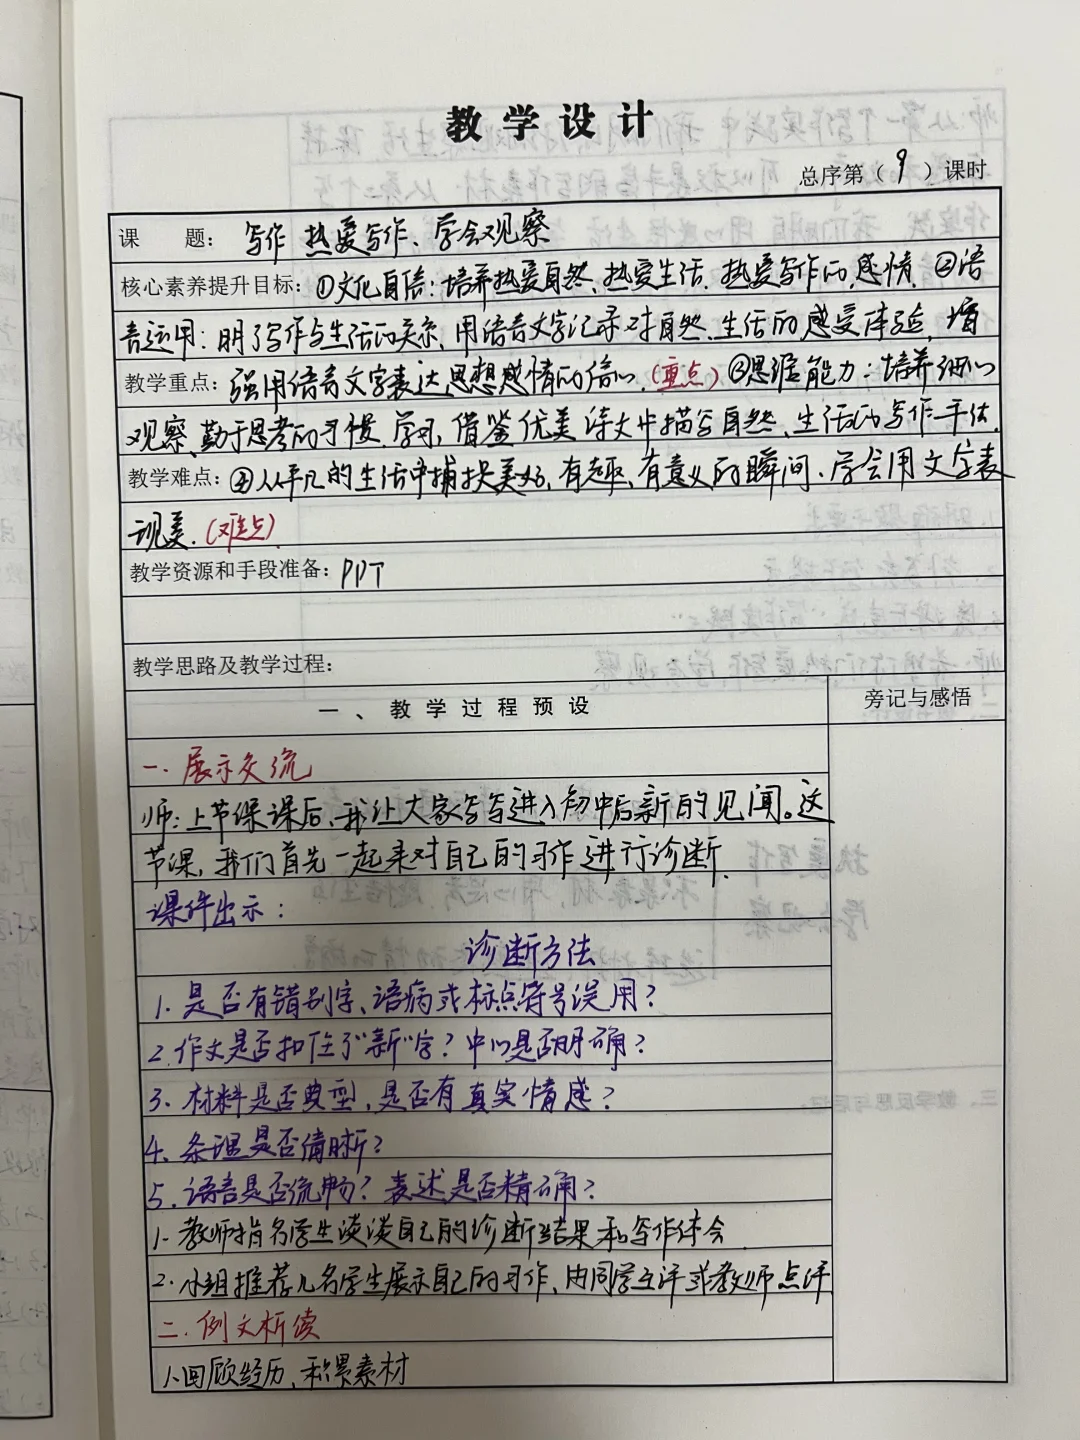 教学设计
总序第（9）课时
课 题：写作 热爱写作、学会观察
核心素养提升目标：①文化自信：培养热爱自然、热爱生活、热爱写作的感情。②语
言运用：明了写作与生活的关系，用语言文字记录对自然、生活的感受体验，增
教学重点：强用语言文字表达思想感情的信心。（重点）③思维能力：培养细心
观察、勤于思考的习惯，学习、借鉴优美诗文中描写自然、生活的写作手法。
教学难点：④从平凡的生活中捕捉美好、有趣、有意义的瞬间、学会用文字表
现美。（难点）
教学资源和手段准备：PPT
教学思路及教学过程：
一、教学过程预设
旁记与感悟
一、展示交流
师：上节课课后，我让大家写写进入初中后新的见闻。这
节课，我们首先一起来对自己的习作进行诊断。
课件出示：
诊断方法
1. 是否有错别字、语病或标点符号误用？
2. 作文是否扣住了“新”字？中心是否明确？
3. 材料是否典型，是否有真实情感？
4. 条理是否清晰？
5. 语言是否流畅？表述是否精确？
1. 教师指名学生谈谈自己的诊断结果和写作体会。
2. 小组推荐几名学生展示自己的习作，由同学互评或教师点评
二. 例文析读
1. 回顾经历、积累素材